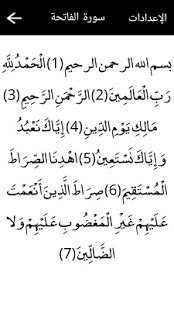 الإعدادات سورة الفاتحة
بسم الله الرحمن الرحيم (1) الْحَمْدُ لِلَّهِ
رَبِّ الْعَالَمِينَ (2) الرَّحْمَنِ الرَّحِيمِ (3)
مَالِكِ يَوْمِ الدِّينِ (4) إِيَّاكَ نَعْبُدُ
وَإِيَّاكَ نَسْتَعِينُ (5) اهْدِنَا الصِّرَاطَ
الْمُسْتَقِيمَ (6) صِرَاطَ الَّذِينَ أَنْعَمْتَ
عَلَيْهِمْ غَيْرِ الْمَغْضُوبِ عَلَيْهِمْ وَلا
الضَّالِّينَ (7)